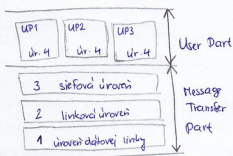 UP1 UP2 UP3
úr. 4 úr. 4 úr. 4
User Part
3 sieťová úroveň
2 linková úroveň
1 úroveň dátovej linky
Message
Transfer
Part